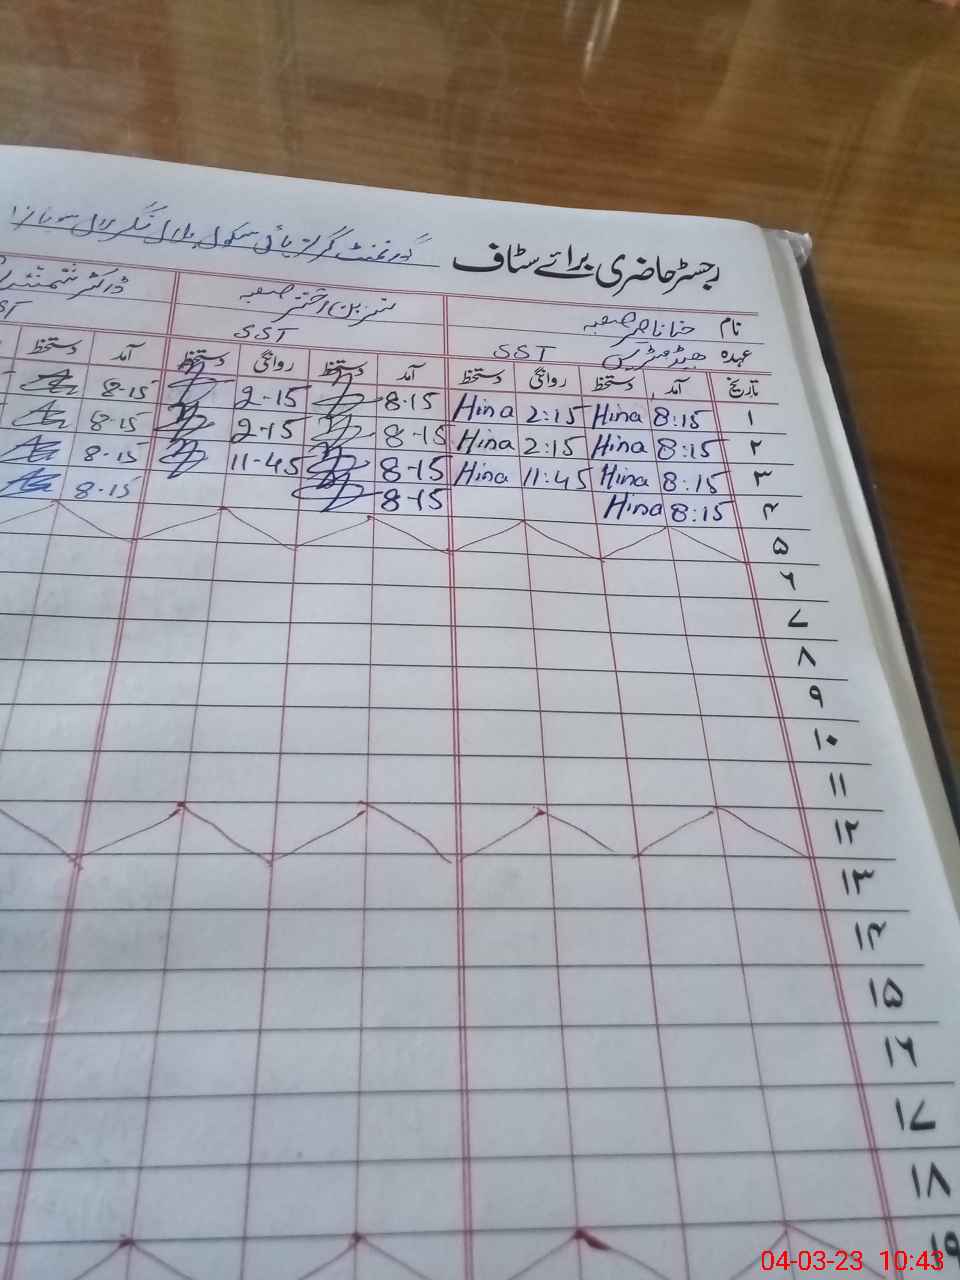 رجسٹر حاضری برائے سٹاف گورنمنٹ گرلز ہائی سکول بلال نگر
نام حنا ناصر صاحبہ اختر صاحبہ ڈاکٹر
عہدہ ہیڈ مسٹریس SST SST
تاریخ آمد دستخط روانگی دستخط آمد دستخط روانگی دستخط آمد دستخط
۱ 8:15 Hina 2:15 Hina 8-15 2-15 8-15
۲ 8:15 Hina 2:15 Hina 8-15 2-15 8-15
۳ 8:15 Hina 11:45 Hina 8-15 11-45 8-15
۴ 8:15 Hina 8-15 8-15
۵
۶
۷
۸
۹
۱۰
۱۱
۱۲
۱۳
۱۴
۱۵
۱۶
۱۷
۱۸
۱۹
04-03-23 10:43